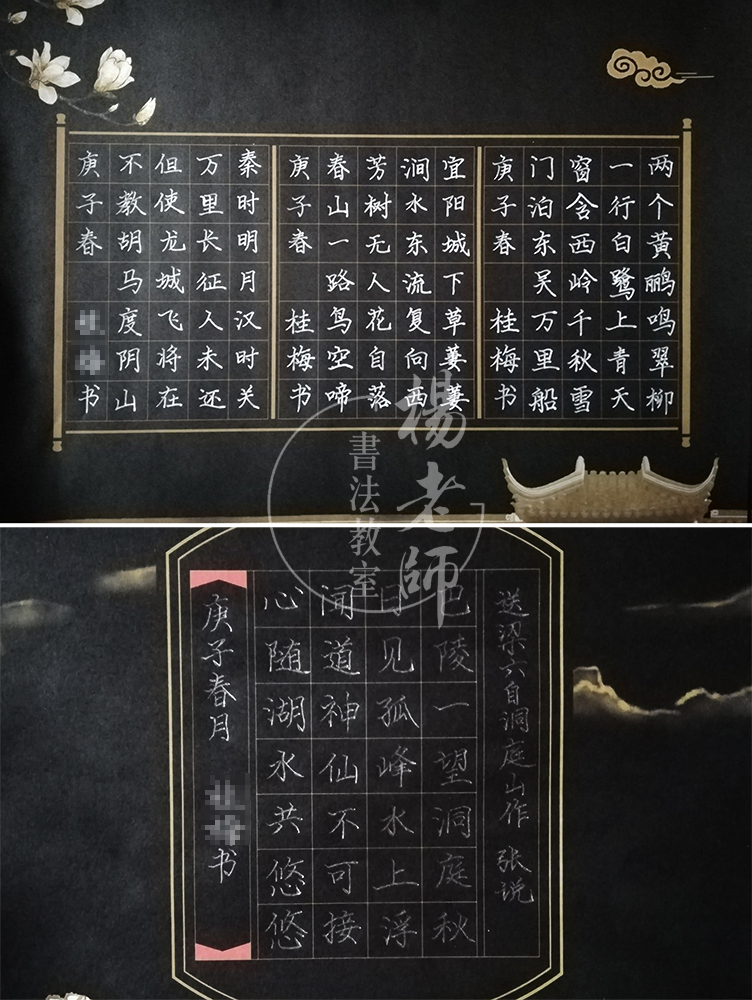 两个黄鹂鸣翠柳
一行白鹭上青天
窗含西岭千秋雪
门泊东吴万里船
庚子春 桂梅书
宜阳城下草萋萋
涧水东流复向西
芳树无人花自落
春山一路鸟空啼
庚子春 桂梅书
秦时明月汉时关
万里长征人未还
但使龙城飞将在
不教胡马度阴山
庚子春 书
楊老師
書法教室
送梁六自洞庭山作 张说
巴陵一望洞庭秋
日见孤峰水上浮
闻道神仙不可接
心随湖水共悠悠
庚子春月 书